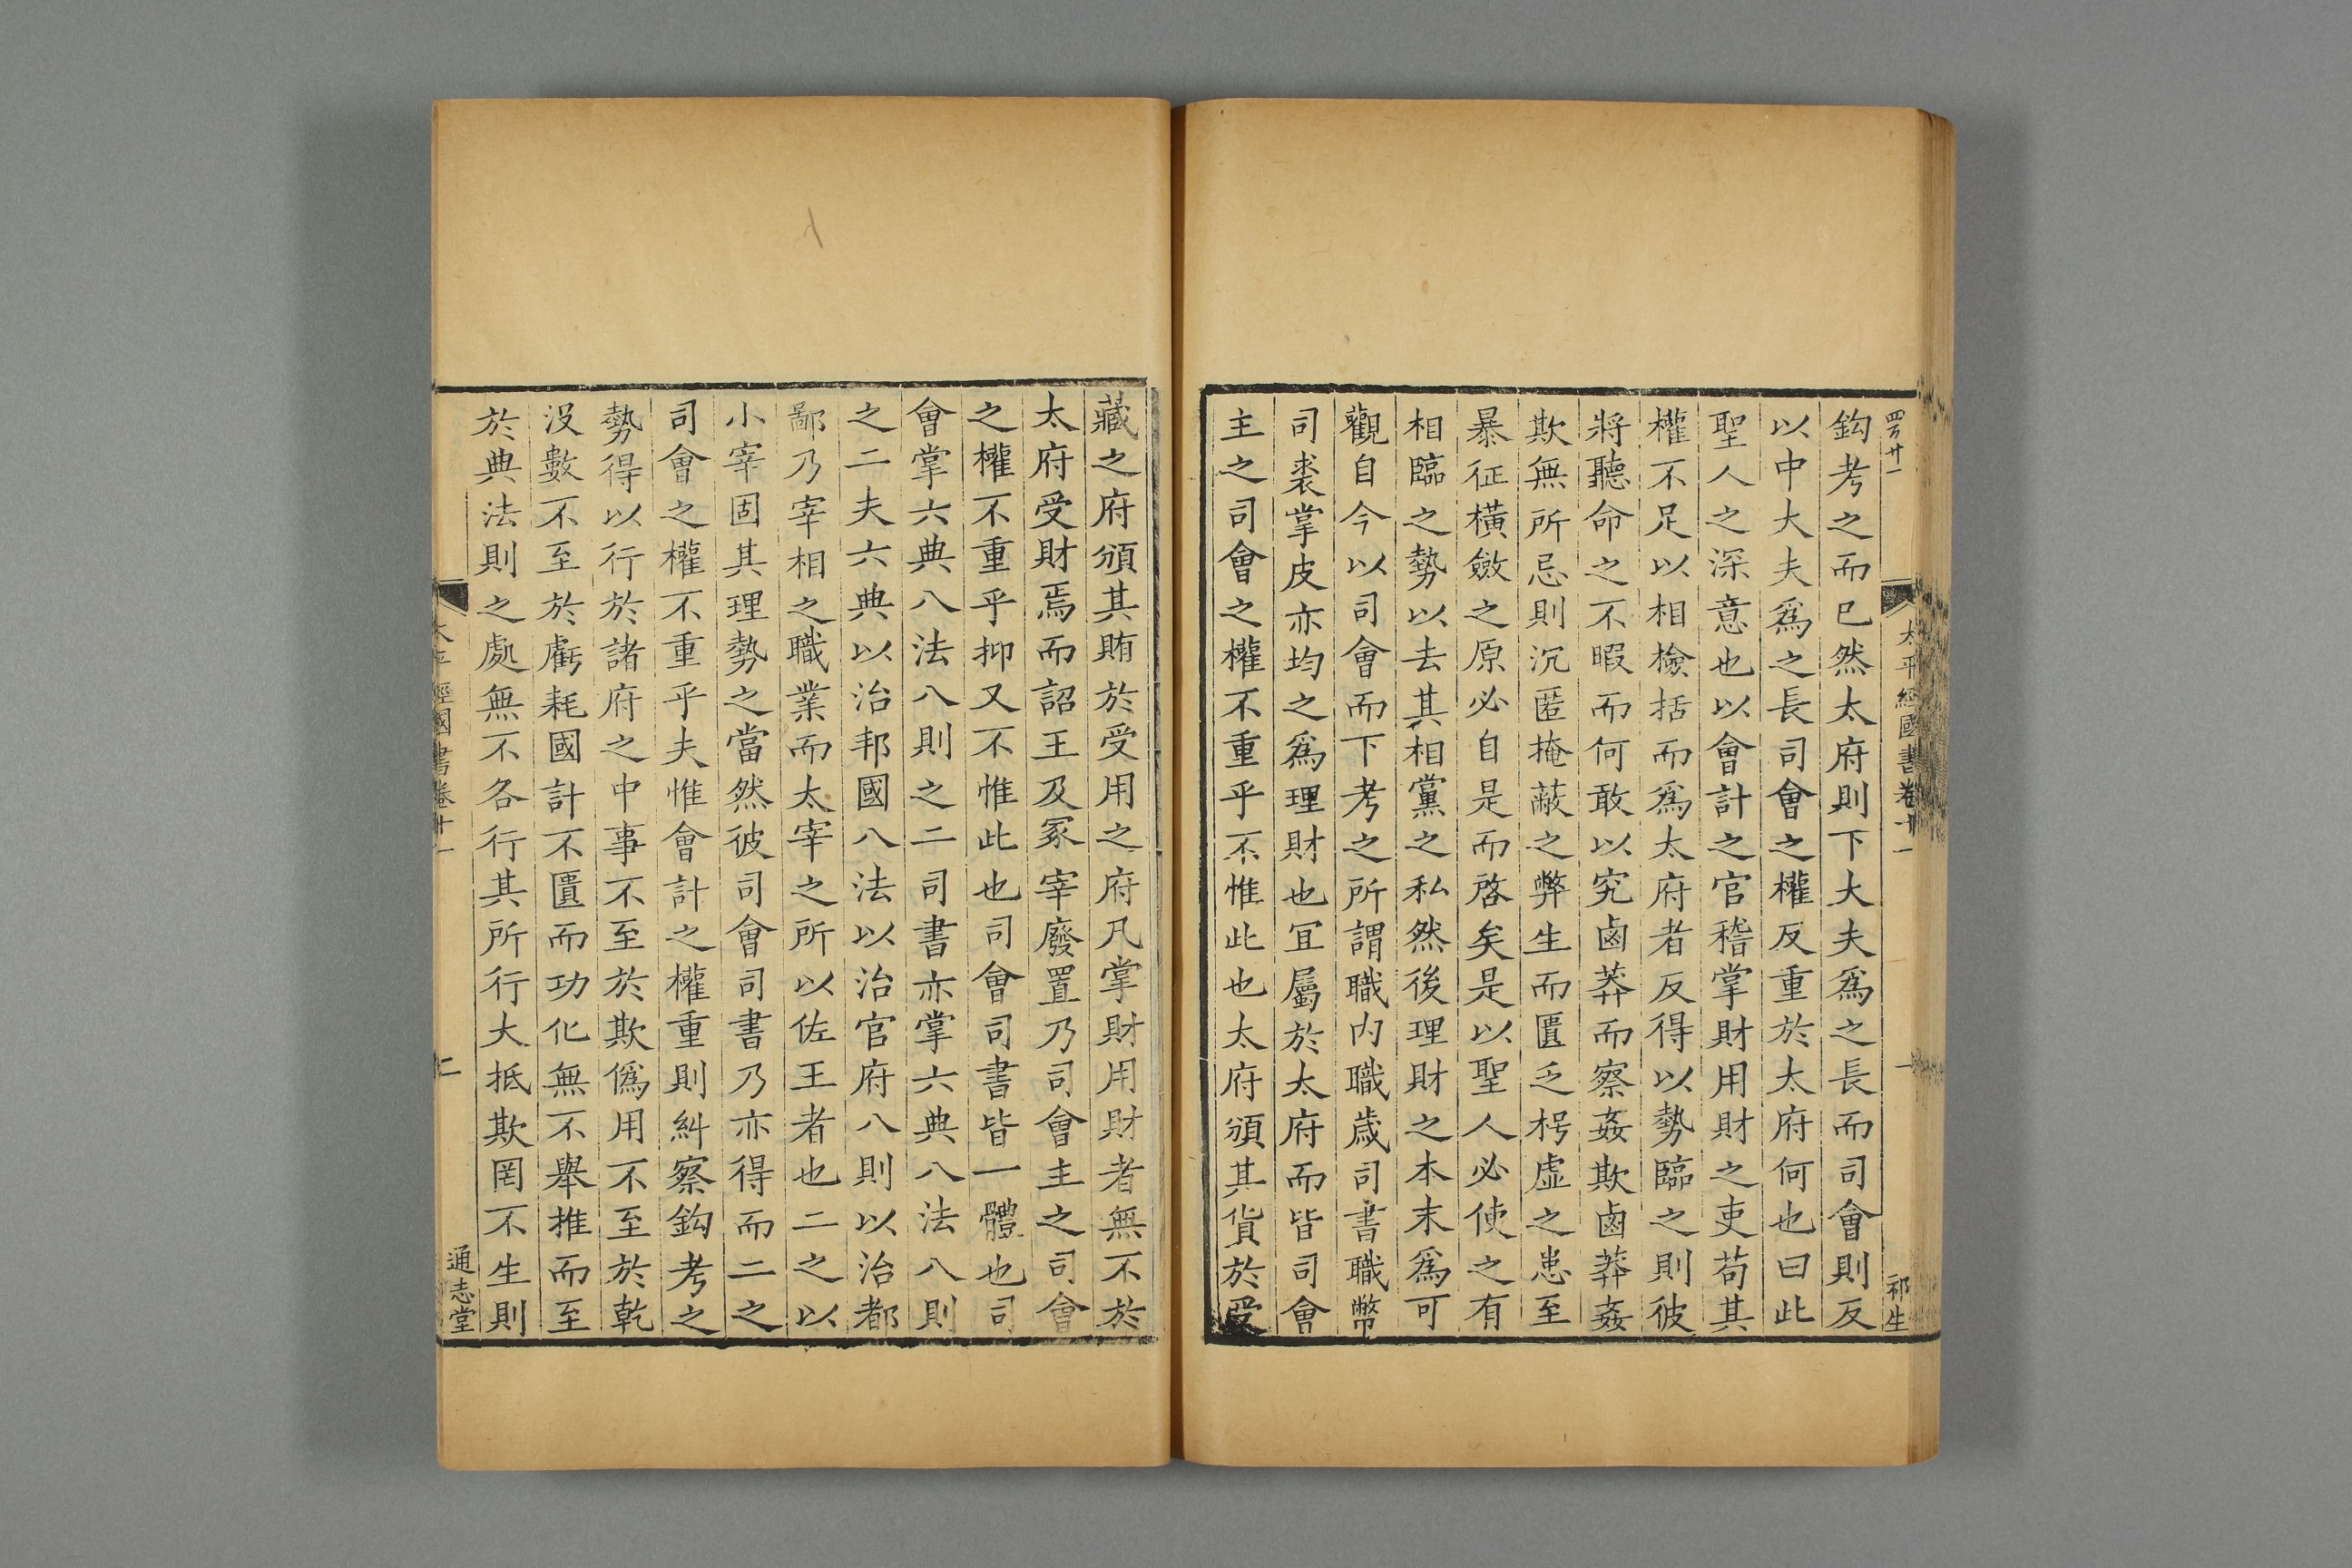 四百廿一
太平經國書卷十一
一
祁生
鈎考之而已然太府則下大夫爲之長而司會則反
以中大夫爲之長司會之權反重於太府何也曰此
聖人之深意也以會計之官稽掌財用財之吏苟其
權不足以相檢括而爲太府者反得以勢臨之則彼
將聽命之不暇而何敢以究鹵莽而察姦欺鹵莽姦
欺無所忌則沉匿掩蔽之弊生而匱乏枵虛之患至
暴征橫斂之原必自是而啓矣是以聖人必使之有
相臨之勢以去其相黨之私然後理財之本末爲可
觀自今以司會而下考之所謂職内職歲司書職幣
司裘掌皮亦均之爲理財也冝屬於太府而皆司會
主之司會之權不重乎不惟此也太府頒其貨於受
藏之府頒其賄於受用之府凡掌財用財者無不於
太府受財焉而詔王及冢宰廢置乃司會主之司會
之權不重乎抑又不惟此也司會司書皆一體也司
會掌六典八法八則之二司書亦掌六典八法八則
之二夫六典以治邦國八法以治官府八則以治都
鄙乃宰相之職業而太宰之所以佐王者也二之以
小宰固其理勢之當然彼司會司書乃亦得而二之
司會之權不重乎夫惟會計之權重則糾察鈎考之
勢得以行於諸府之中事不至於欺僞用不至於乾
没數不至於虧耗國計不匱而功化無不舉推而至
於典法則之處無不各行其所行大抵欺罔不生則
太平經國書卷十一
二
通志堂